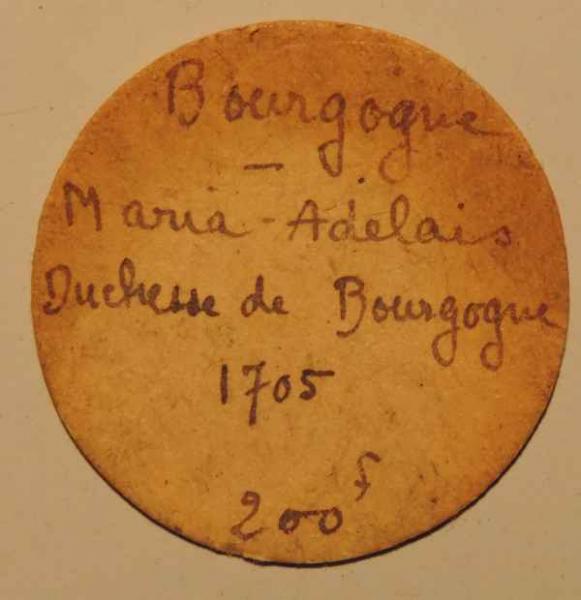 Bourgogne
—
Maria-Adelais
Duchesse de Bourgogne
1705
200 f